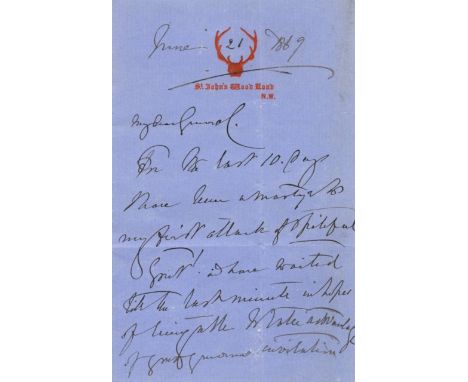 June 21 1869
St. John's Wood Road
N.W.
My dear General.
For the last 10. days
I have been a martyr to
my first attack of spiteful
Gout! & have waited
till the last minute in hopes
of being able to take advantage
of your generous invitation